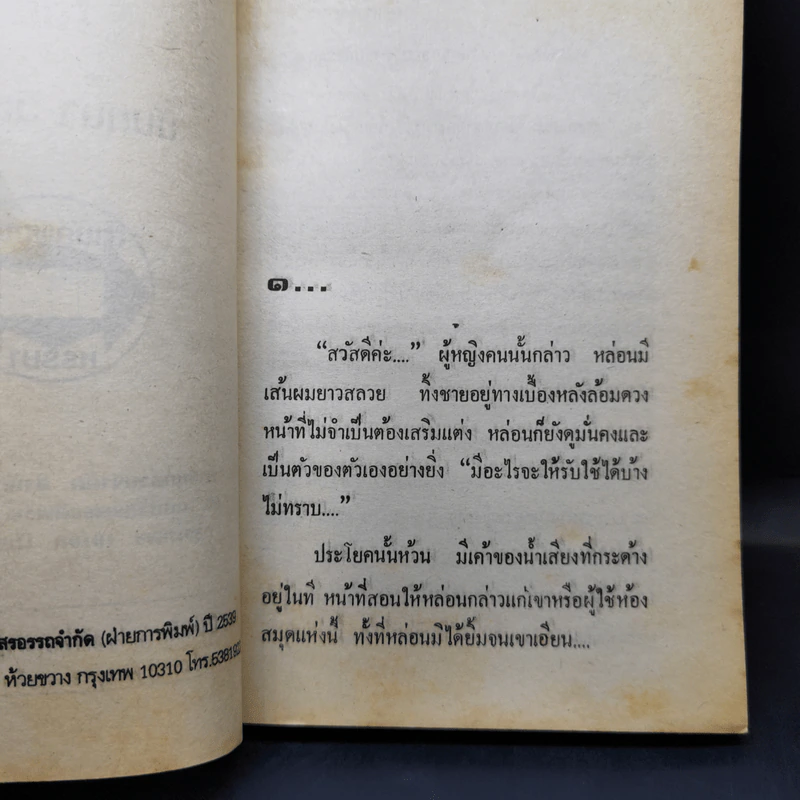 สรอรรถจำกัด (ฝ่ายการพิมพ์) ปี 2539
ห้วยขวาง กรุงเทพ 10310 โทร.538192
๑...
“สวัสดีค่ะ....” ผู้หญิงคนนั้นกล่าว หล่อนมี
เส้นผมยาวสลวย ทิ้งชายอยู่ทางเบื้องหลังล้อมดวง
หน้าที่ไม่จำเป็นต้องเสริมแต่ง หล่อนก็ยังดูมั่นคงและ
เป็นตัวของตัวเองอย่างยิ่ง “มีอะไรจะให้รับใช้ได้บ้าง
ไม่ทราบ....”
ประโยคนั้นห้วน มีเค้าของน้ำเสียงที่กระด้าง
อยู่ในที หน้าที่สอนให้หล่อนกล่าวแก่เขาหรือผู้ใช้ห้อง
สมุดแห่งนี้ ทั้งที่หล่อนมิได้ยิ้มจนเขาเอียน....